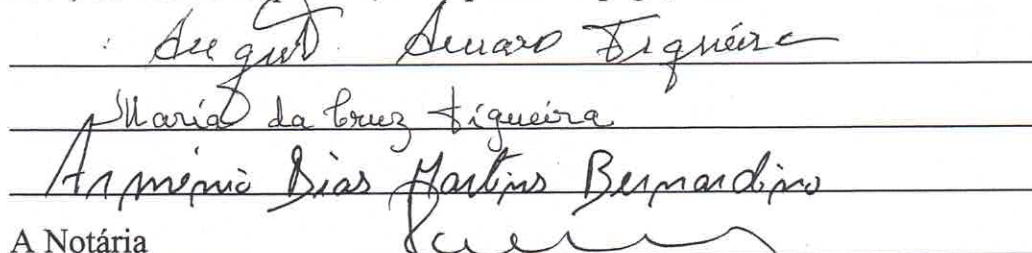 August Amaro Figueira
Maria da Cruz Figueira
Arménio Dias Martins Bernardino
A Notária